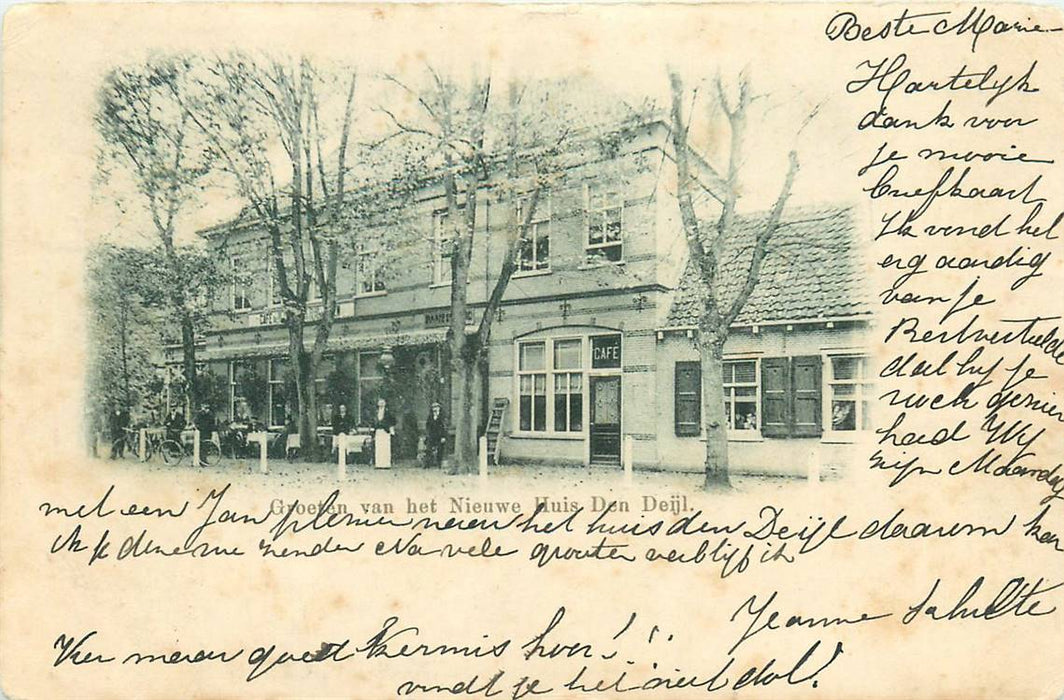 Beste Marie
Hartelijk
dank voor
je mooie
briefkaart
Ik vond het
erg aardig
van je
dat hy je
noch
had Wy
zijn Maandag
CAFÉ
Groeten van het Nieuwe Huis Den Deijl.
met een Jan plezier naar het huis den Deijl daarom kan
ik je deze zenden Na vele groeten verblijf ik
Jeanne Schulte
Ver maar goed Kermis hoor!!!
vindt je het niet dol!